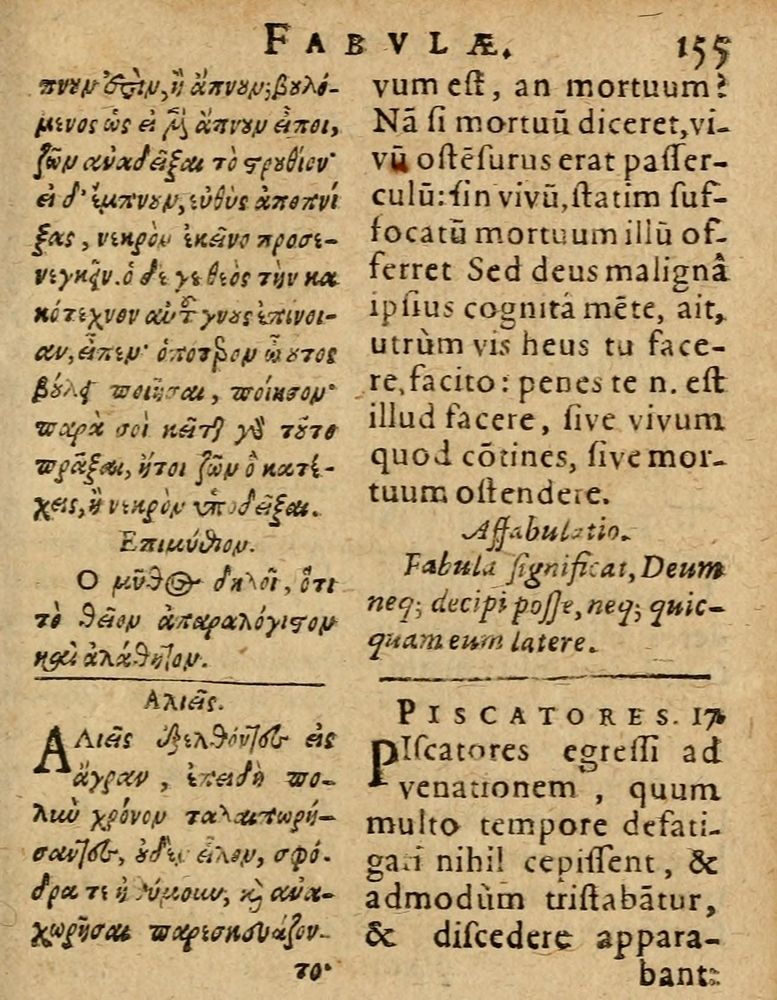 FABVLÆ. 155
πνουν ἐστὶν, ἢ ἄπνουν; βουλό-
μενος ὡς εἰ μὲν ἄπνουν εἴποι,
ζῶν ἀναδεῖξαι τὸ στρουθίον·
εἰ δ' ἔμπνουν, εὐθὺς ἀποπνί
ξας, νεκρὸν ἐκεῖνο προσε-
νεγκεῖν. ὁ δέ γε θεὸς τὴν κα
κότεχνον αὐτοῦ γνοὺς ἐπίνοι-
αν, εἶπεν· ὁπότερον ὦ οὗτος
βούλει ποιῆσαι, ποίησον·
παρὰ σοὶ κεῖται γὰρ τοῦτο
πρᾶξαι, ἤτοι ζῶν ὃ κατέ-
χεις, ἢ νεκρὸν ὑποδεῖξαι.
Ἐπιμύθιον.
Ο μῦθος δηλοῖ, ὅτι
τὸ θεῖον ἀπαραλόγιστον
καὶ ἀλάθητον.
Αλιεῖς.
ΑΛιεῖς ἐξελθόντες εἰς
ἄγραν, ἐπειδὴ πο-
λὺν χρόνον ταλαιπωρή-
σαντες, οὐδὲν εἷλον, σφό-
δρα τε ἠθύμουν, καὶ ἀνα-
χωρῆσαι παρεσκευάζον-
το·
vum est, an mortuum?
Nā si mortuū diceret, vi-
vū ostēsurus erat passer-
culū: sin vivū, statim suf-
focatū mortuum illū of-
ferret Sed deus malignâ
ipsius cognitá mēte, ait,
utrùm vis heus tu face-
re, facito: penes te n. est
illud facere, sive vivum
quod cōtines, sive mor-
tuum ostendere.
Affabulatio.
Fabula significat, Deum
neq; decipi posse, neq; quic-
quam eum latere.
PISCATORES. 17.
PIscatores egressi ad
venationem, quum
multo tempore defati-
gati nihil cepissent, &
admodùm tristabātur,
& discedere appara-
bant: